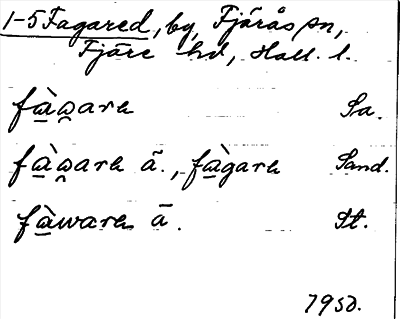 1-5 Fagared, by, Fjärås sn,
Fjäre hd, Hall. l.
fà̱w̯are Sa.
fà̱w̯are ä., fà̱gare Sand.
fà̱ware ä. St.